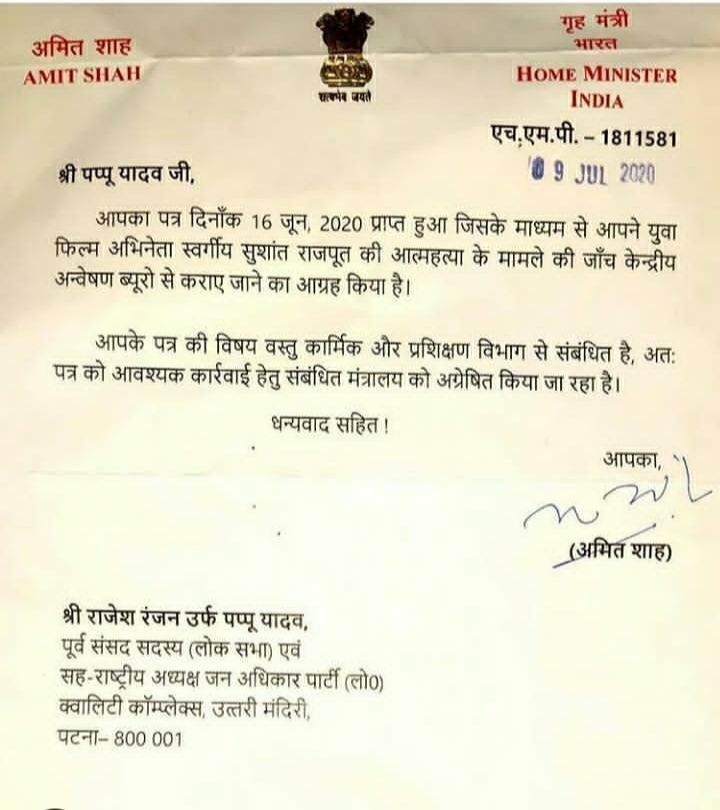 अमित शाह
AMIT SHAH
सत्यमेव जयते
गृह मंत्री
भारत
HOME MINISTER
INDIA
एच.एम.पी. – 1811581
09 JUL 2020
श्री पप्पू यादव जी,
आपका पत्र दिनाँक 16 जून, 2020 प्राप्त हुआ जिसके माध्यम से आपने युवा
फिल्म अभिनेता स्वर्गीय सुशांत राजपूत की आत्महत्या के मामले की जाँच केन्द्रीय
अन्वेषण ब्यूरो से कराए जाने का आग्रह किया है।
आपके पत्र की विषय वस्तु कार्मिक और प्रशिक्षण विभाग से संबंधित है, अत:
पत्र को आवश्यक कार्रवाई हेतु संबंधित मंत्रालय को अग्रेषित किया जा रहा है।
धन्यवाद सहित !
आपका,
(अमित शाह)
श्री राजेश रंजन उर्फ पप्पू यादव,
पूर्व संसद सदस्य (लोक सभा) एवं
सह-राष्ट्रीय अध्यक्ष जन अधिकार पार्टी (लो0)
क्वालिटी कॉम्प्लेक्स, उत्तरी मंदिरी,
पटना– 800 001